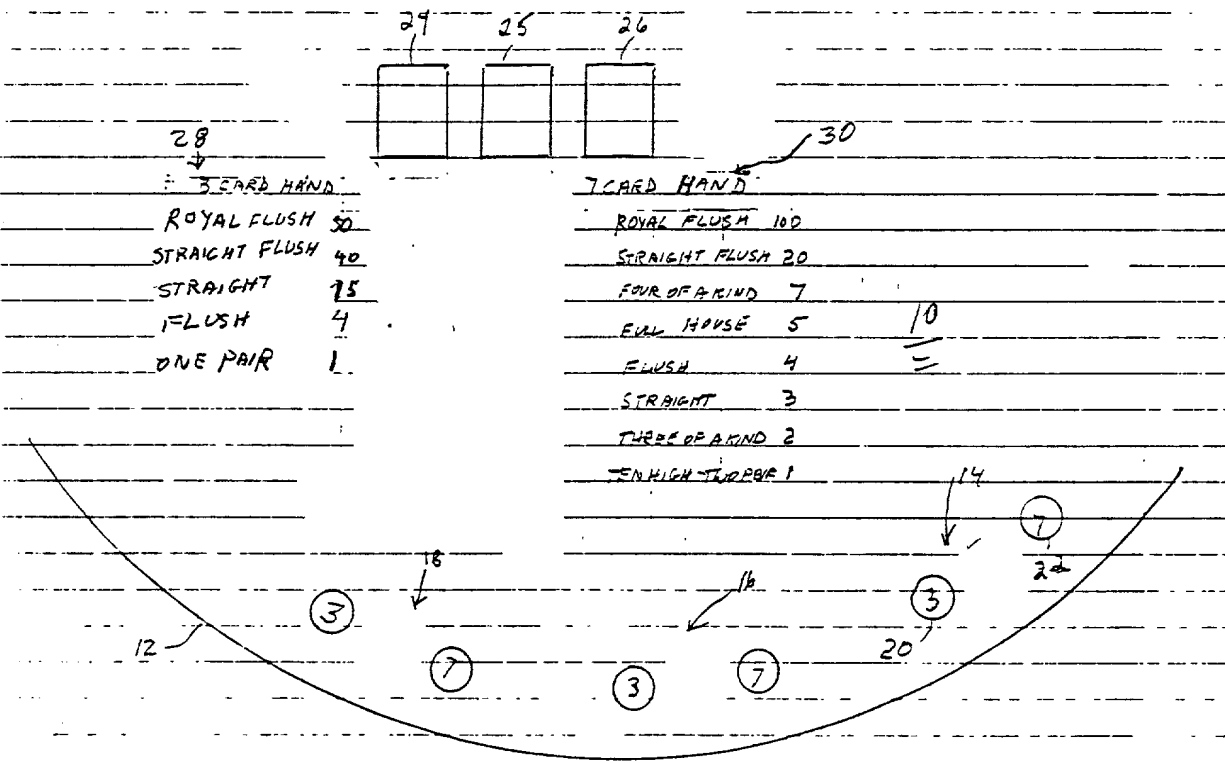 24 25 26
28 30
3 CARD HAND
ROYAL FLUSH 50
STRAIGHT FLUSH 40
STRAIGHT 15
FLUSH 4
ONE PAIR 1
7 CARD HAND
ROYAL FLUSH 100
STRAIGHT FLUSH 20
FOUR OF A KIND 7
FULL HOUSE 5
FLUSH 4
STRAIGHT 3
THREE OF A KIND 2
TEN HIGH TWO PAIR 1
10
14
7
22
18 16
3 3
12 20
7 3 7